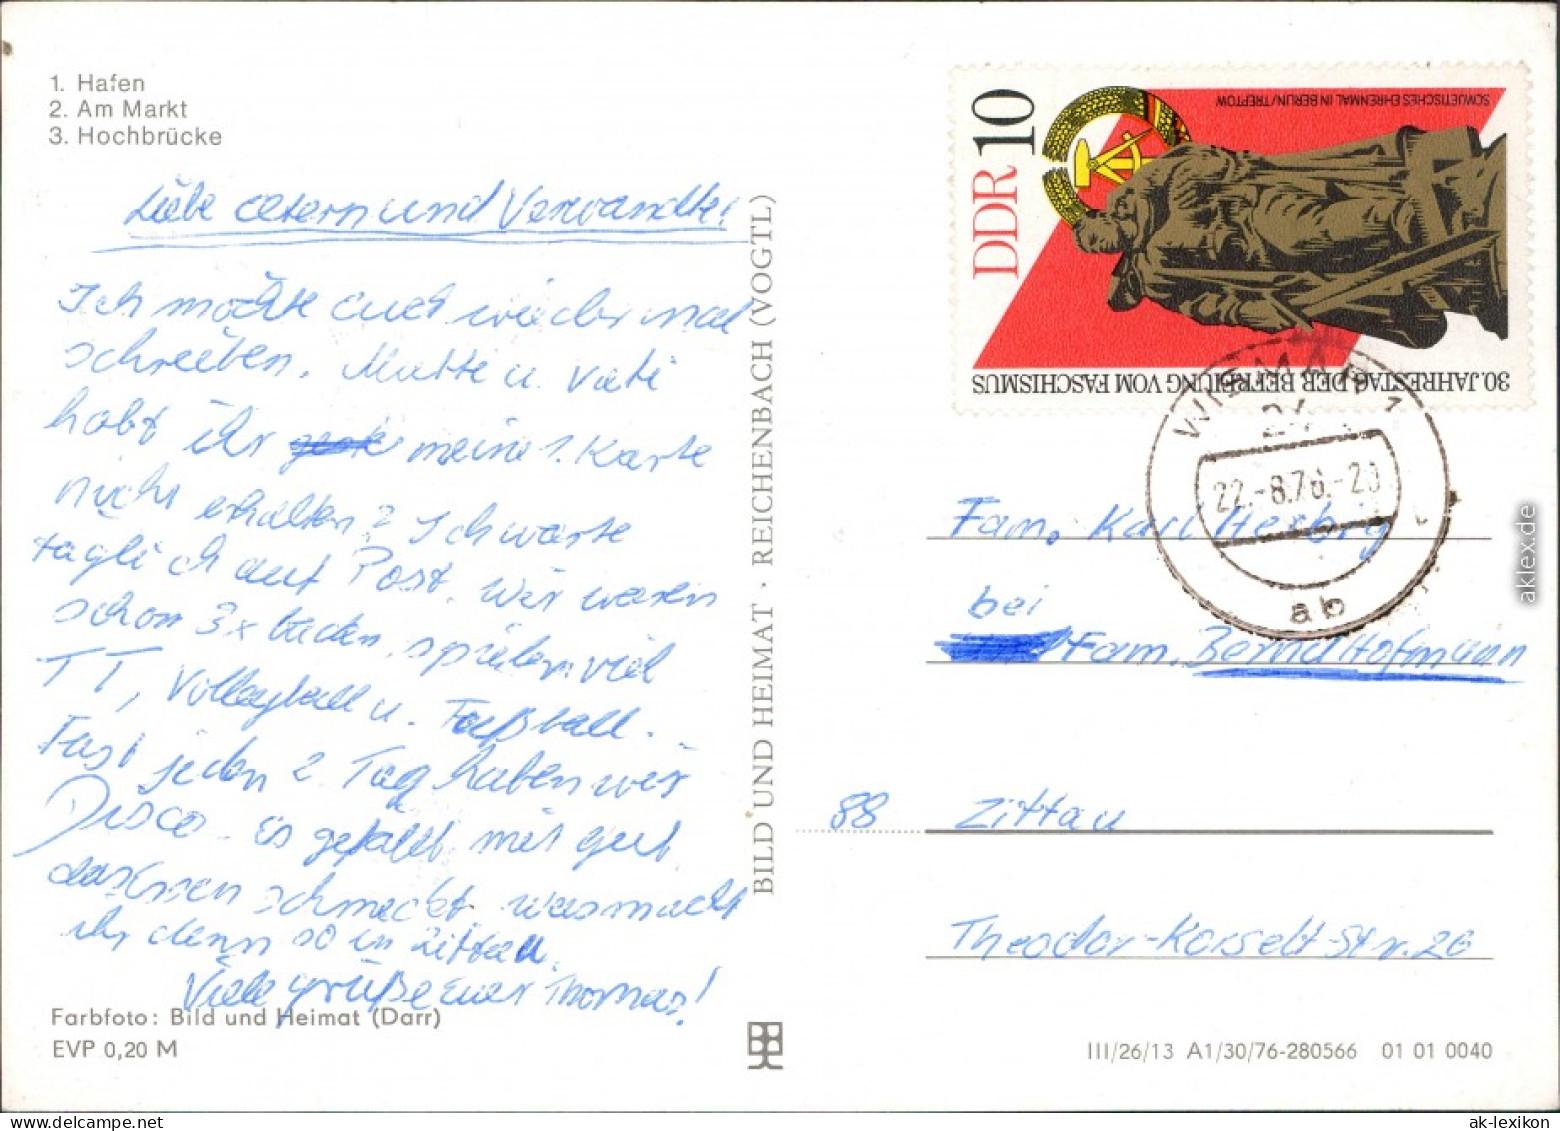 1. Hafen
2. Am Markt
3. Hochbrücke
Liebe Eltern und Verwandte!
Ich möchte euch wieder mal
schreiben. Mutti u. Vati
habt ihr meine 1. Karte
nicht erhalten? Ich warte
täglich auf Post. Wir waren
schon 3x baden, spielen viel
TT, Volleyball u. Fußball.
Fast jeden 2. Tag haben wir
Disco. Es gefällt mir gut
das Essen schmeckt was macht
ihr denn so in Zittau.
Viele Grüße Euer Thomas!
Farbfoto: Bild und Heimat (Darr)
EVP 0,20 M
BILD UND HEIMAT · REICHENBACH (VOGTL)
DDR 10
SOWJETISCHES EHRENMAL IN BERLIN/TREPTOW
30. JAHRESTAG DER BEFREIUNG VOM FASCHISMUS
WISMAR 1
24
22.-8.76.-20
ab
Fam. Karl Herbig
bei
Fam. Bernd Hofmann
88 Zittau
Theodor-Korselt-Str. 26
III/26/13 A1/30/76-280566 01 01 0040
aklex.de
ak-lexikon